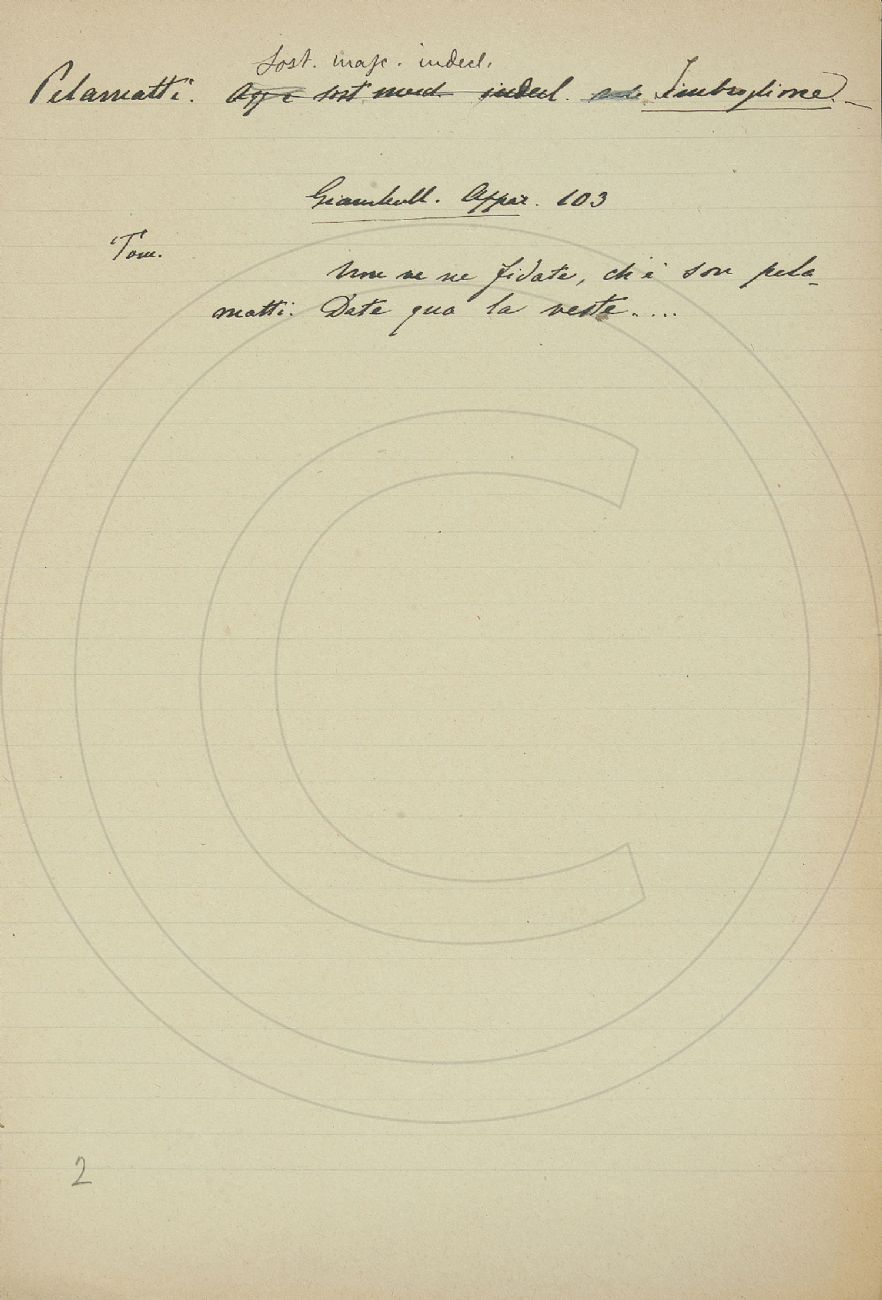 Sost. masc. indecl.
Pelamatti. Agg. e sost. indecl. Imbroglione. —
Giambull. Appar. 103
Tom.
Non ve ne fidate, ch'e' son pela-
matti. Date qua la veste....
2